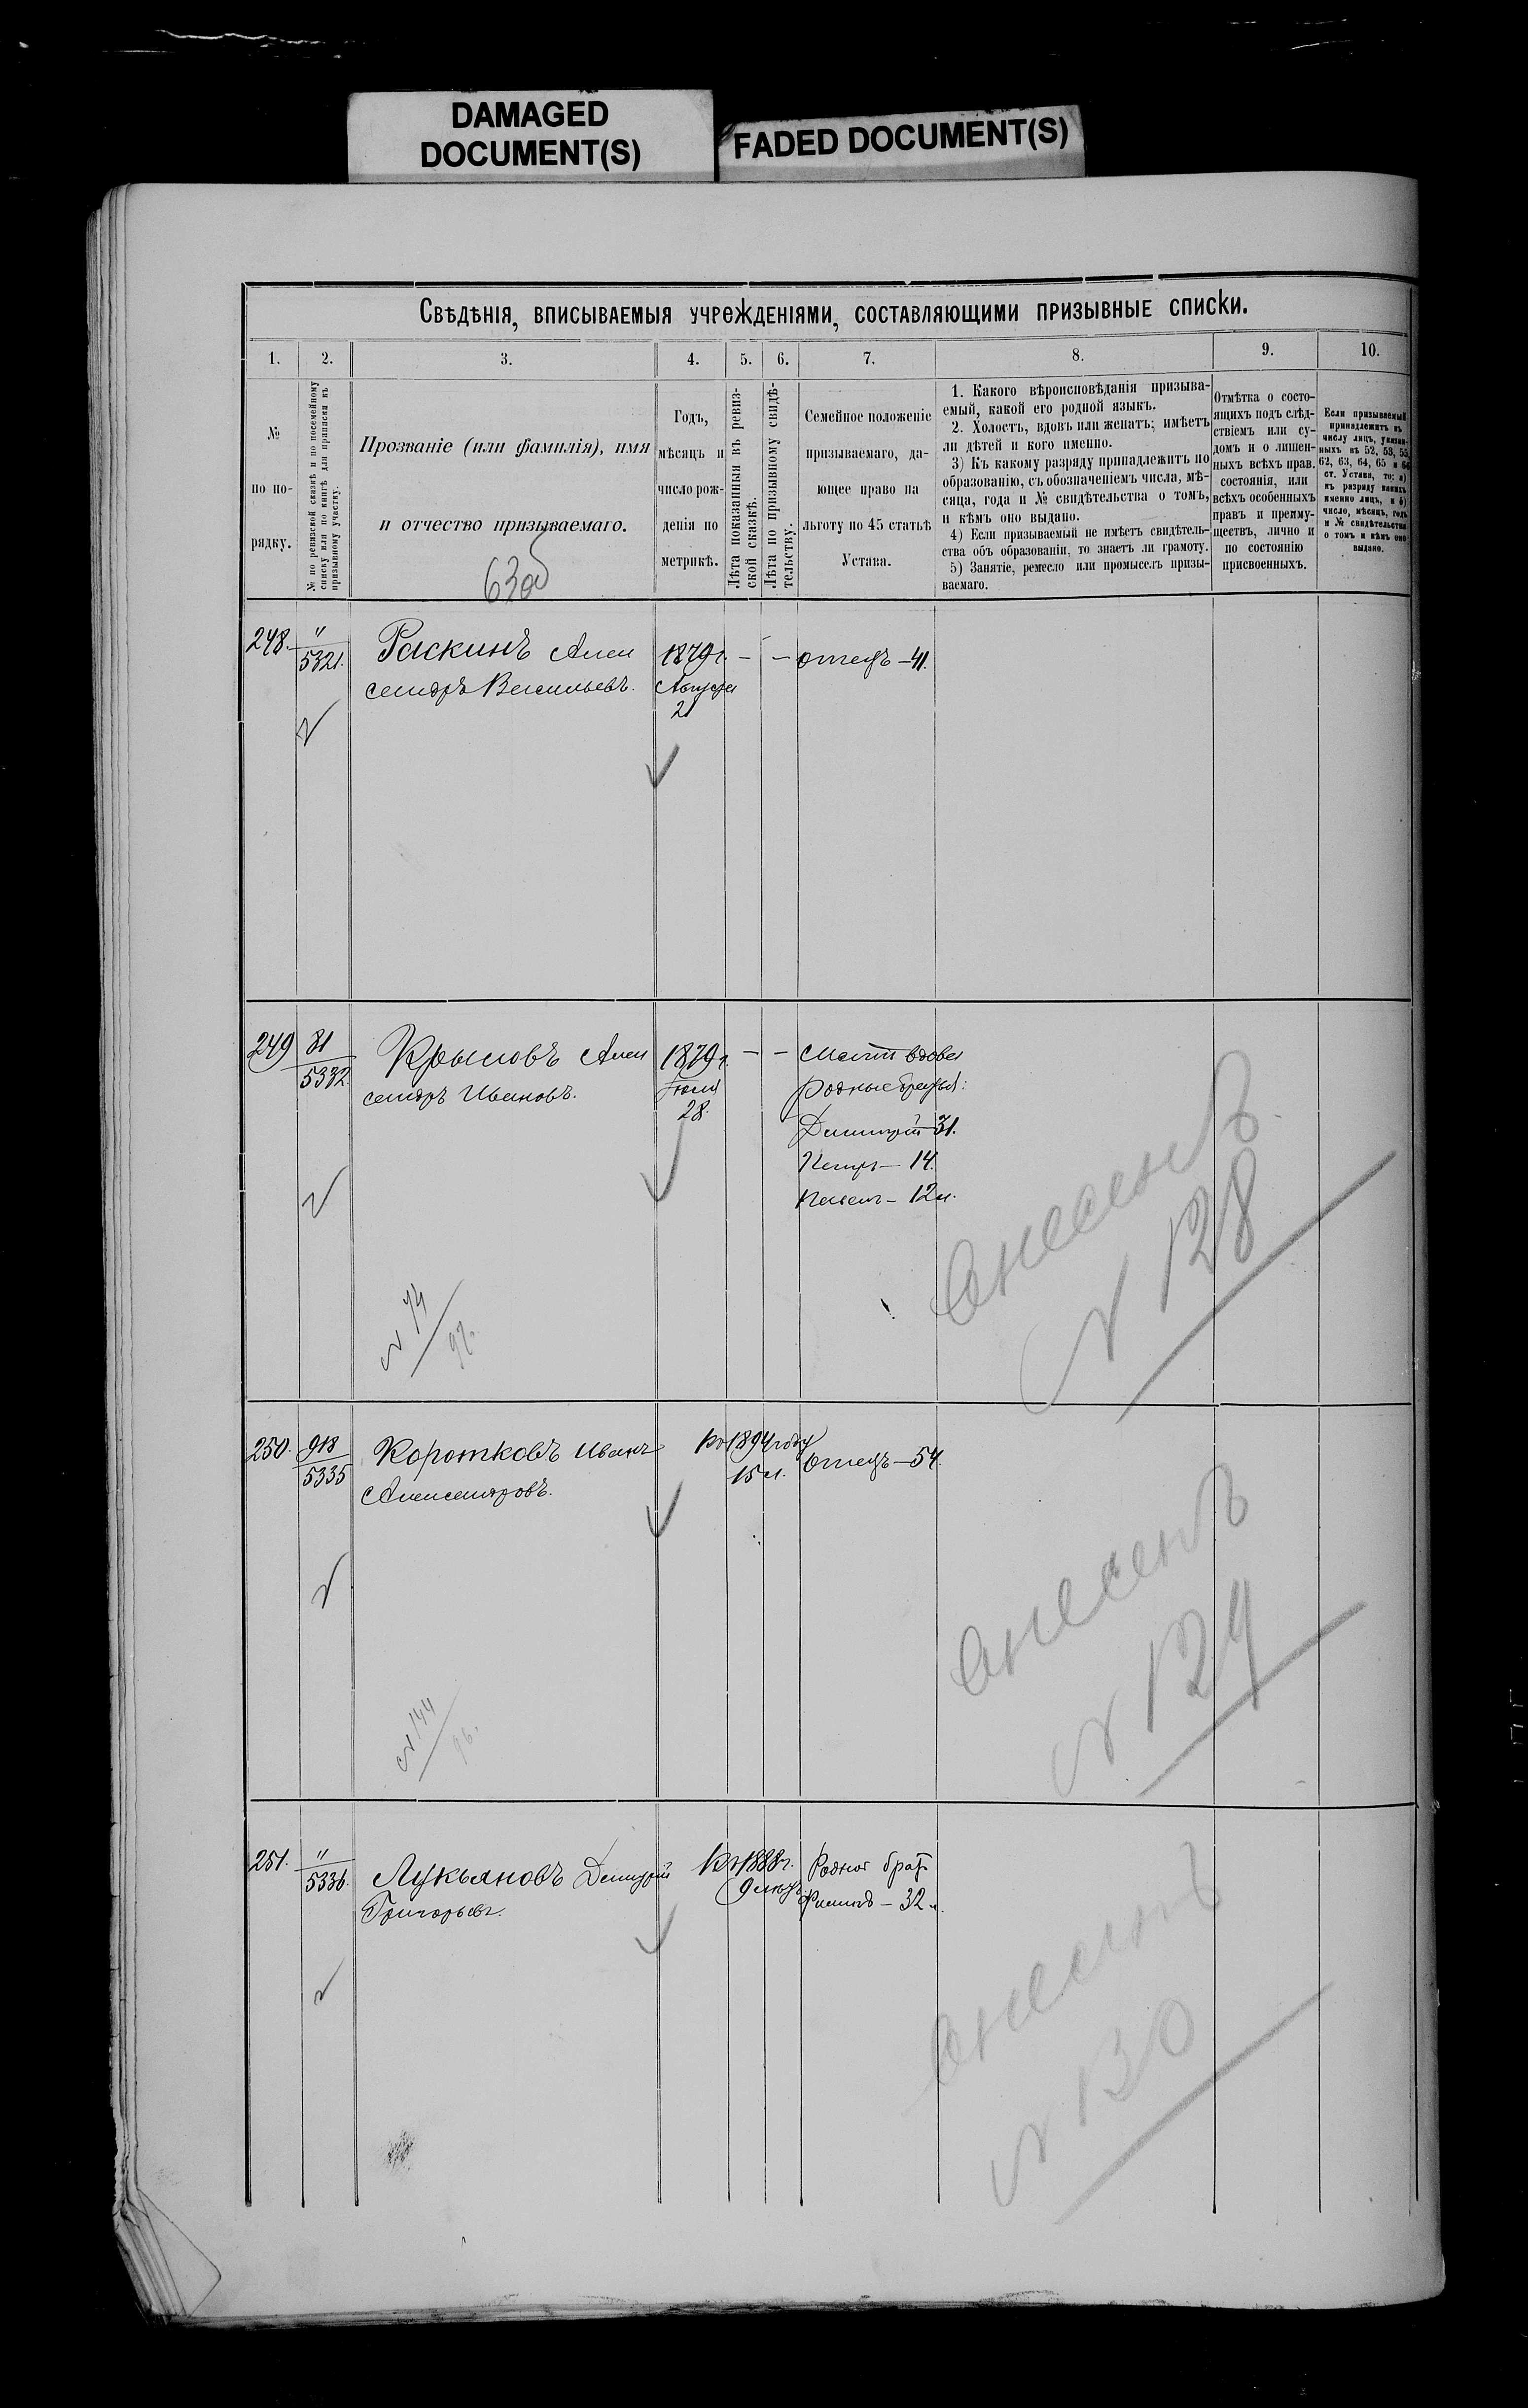 DAMAGED
DOCUMENT(S)
FADED DOCUMENT(S)
Свѣдѣнія, вписываемыя учрежденіями, составляющими призывные списки.
1. 2. 3. 4. 5. 6. 7. 8. 9. 10.
№
по по-
рядку.
№ по ревизской сказкѣ и по посемейному
списку или по книгѣ для приписки къ
призывному участку.
Прозваніе (или фамилія), имя
и отчество призываемаго.
Годъ,
мѣсяцъ и
число рож-
денія по
метрикѣ.
Лѣта показанныя въ ревиз-
ской сказкѣ.
Лѣта по призывному свидѣ-
тельству.
Семейное положеніе
призываемаго, да-
ющее право на
льготу по 45 статьѣ
Устава.
1. Какого вѣроисповѣданія призыва-
емый, какой его родной языкъ.
2. Холостъ, вдовъ или женатъ; имѣетъ
ли дѣтей и кого именно.
3) Къ какому разряду принадлежитъ по
образованію, съ обозначеніемъ числа, мѣ-
сяца, года и № свидѣтельства о томъ,
и кѣмъ оно выдано.
4) Если призываемый не имѣетъ свидѣтель-
ства объ образованіи, то знаетъ ли грамоту.
5) Занятіе, ремесло или промыселъ призы-
ваемаго.
Отмѣтка о состо-
ящихъ подъ слѣд-
ствіемъ или су-
домъ и о лишен-
ныхъ всѣхъ прав.
состоянія, или
всѣхъ особенныхъ
правъ и преиму-
ществъ, лично и
по состоянію
присвоенныхъ.
Если призываемый
принадлежитъ къ
числу лицъ, указан-
ныхъ въ 52, 53, 55,
62, 63, 64, 65 и 66
ст. Устава, то: а)
къ разряду какихъ
именно лицъ, и б)
число, мѣсяцъ, годъ
и № свидѣтельства
о томъ и кѣмъ оно
выдано.
630
248. " 5321. Раскинъ Алек 1879г. — — Отецъ — 41.
сандръ Васильевъ. Августа
21
249 81 5332. Крыловъ Алек 1879г. — — Мать вдова
сандръ Ивановъ. Іюля родные братья:
28. Дмитрій 31.
Петръ — 14.
Павелъ — 12 л.
Внесенъ
№ 128
№ 74
97.
250. 918 5335 Коротковъ Иванъ по 1894 году Отецъ — 54.
Александровъ. 15 л.
Внесенъ
№ 129
№ 144
96.
251. " 5336. Лукьяновъ Дмитрій Къ 1888г. Родной братъ
Григорьевъ. 9 лѣтъ Филиппъ — 32 л.
Внесенъ
№ 130